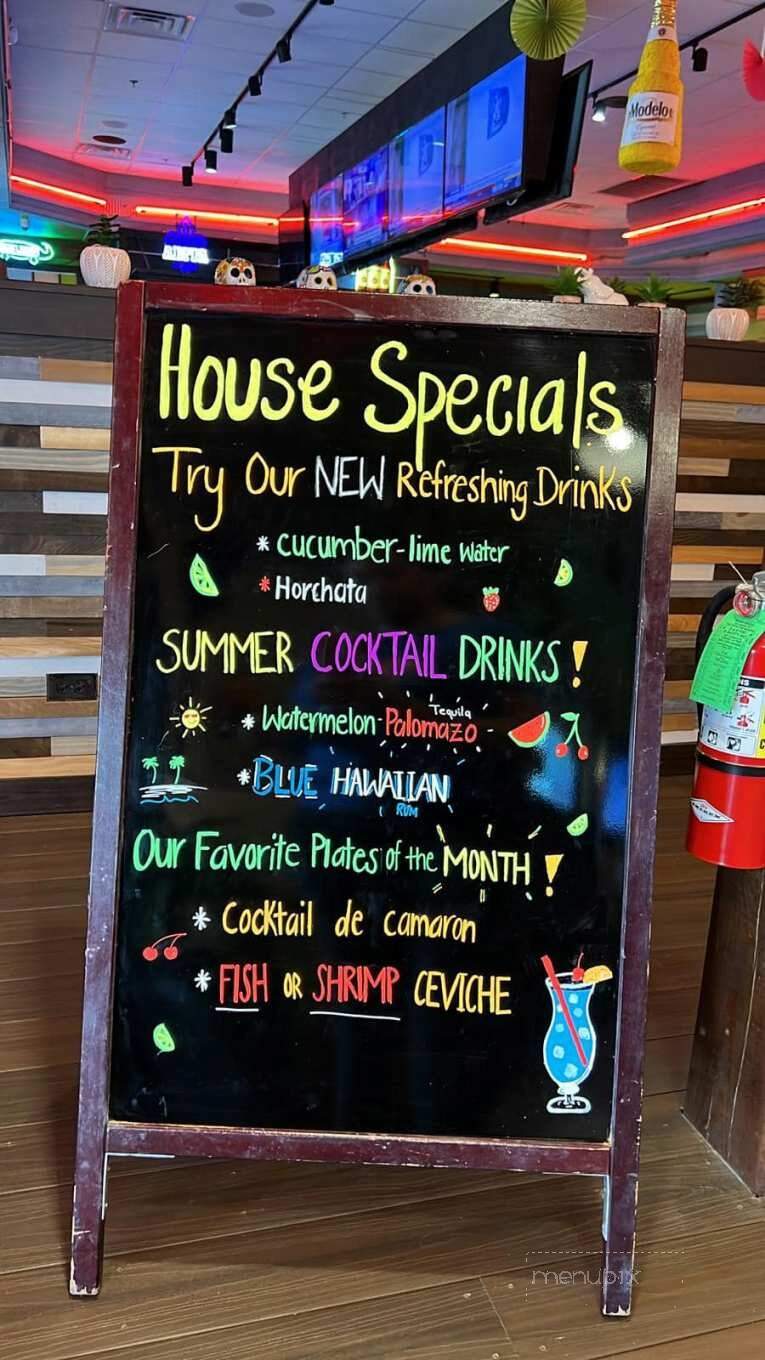 Modelo
House Specials
Try Our NEW Refreshing Drinks
* cucumber-lime water
* Horchata
SUMMER COCKTAIL DRINKS!
Tequila
* Watermelon-Palomazo
* BLUE HAWAIIAN
RUM
Our Favorite Plates of the MONTH!
* Cocktail de camaron
* FISH OR SHRIMP CEVICHE
menupix